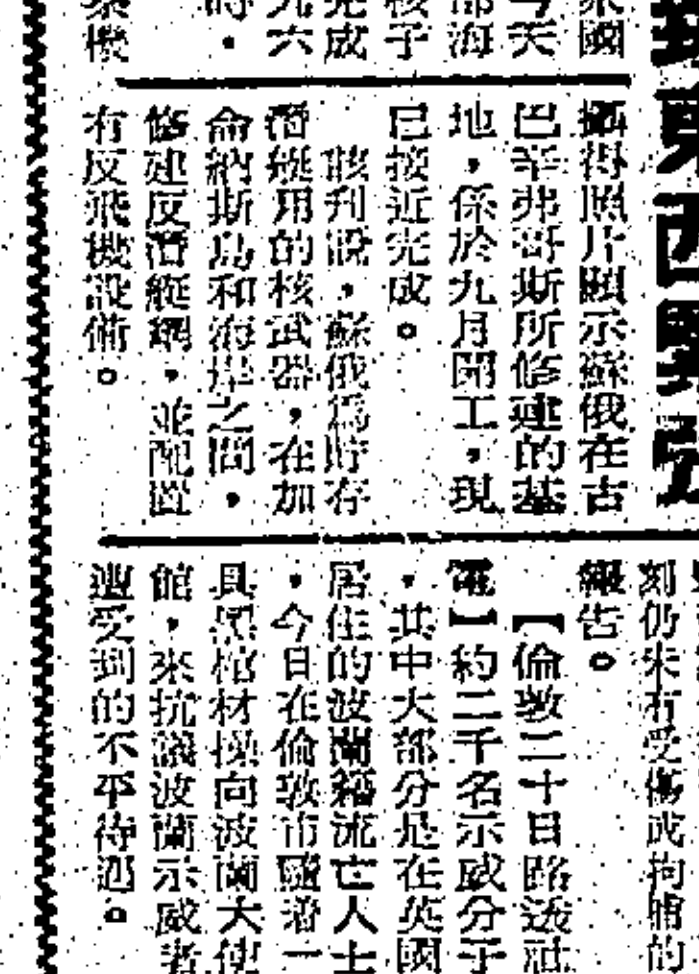 攝得照片顯示蘇俄在古
巴辛弗哥斯所修建的基
地，係於九月開工，現
已接近完成。
該刊說，蘇俄爲貯存
潛艇用的核武器，在加
侖納斯島和海岸之間，
修建反潛艇網，並配置
有反飛機設備。
刻仍未有受傷或拘捕的
報告。
【倫敦二十日路透社
電】約二千名示威分子
，其中大部分是在英國
居住的波蘭籍流亡人士
，今日在倫敦市隨着一
具黑棺材操向波蘭大使
館，來抗議波蘭示威者
遭受到的不平待遇。